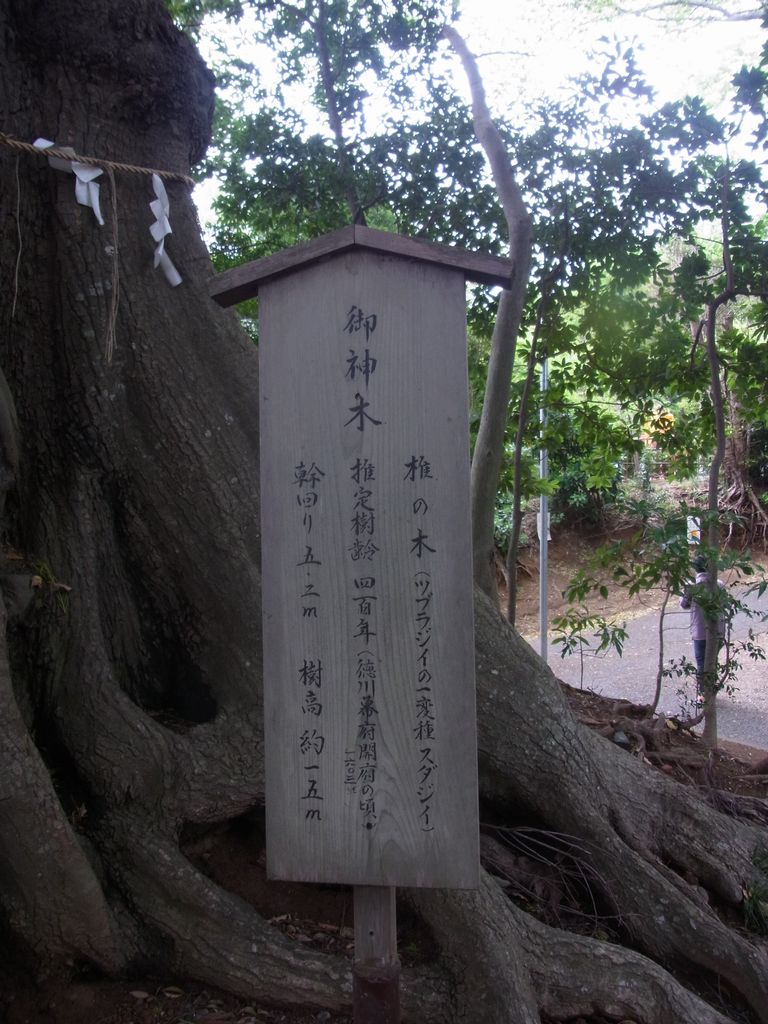 御神木
椎の木(ツブラジイの一変種 スダジイ)
推定樹齢 四百年(徳川幕府開府の頃)
一六〇三
幹回り 五.二m 樹高 約一五m